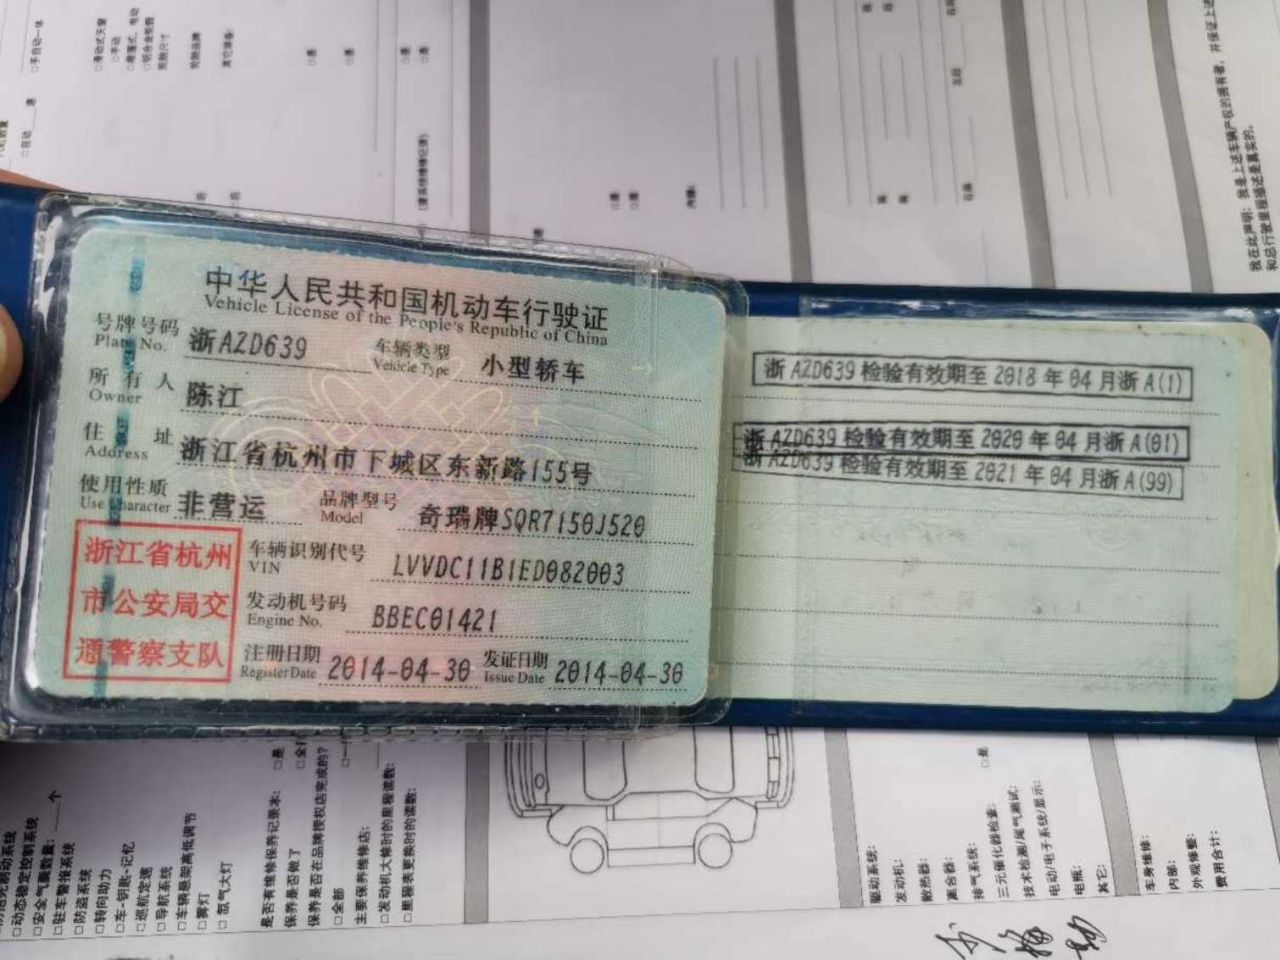 中华人民共和国机动车行驶证
Vehicle License of the People's Republic of China
号牌号码 浙AZD639 车辆类型 小型轿车
Plate No. Vehicle Type
所有人 陈江
Owner
住址 浙江省杭州市下城区东新路155号
Address
使用性质 非营运 品牌型号 奇瑞牌SQR7150J520
Use Character Model
浙江省杭州
市公安局交
通警察支队
车辆识别代号 LVVDC11B1ED082003
VIN
发动机号码 BBEC01421
Engine No.
注册日期 2014-04-30 发证日期 2014-04-30
Register Date Issue Date
浙AZD639检验有效期至2018年04月浙A(1)
浙AZD639检验有效期至2020年04月浙A(01)
浙AZD639检验有效期至2021年04月浙A(99)
我在此声明：我是上述车辆产权的拥有者，并保证上述
和总行驶里程描述是真实的。
□动态稳定控制系统
□安全气囊数量：____个
□驻车警报系统
□防盗系统
□转向助力
□车-钥匙-记忆
□巡航定速
□导航系统
□车辆悬架高低调节
□雾灯
□氙气大灯
是否有维修保养记录本： □是
保养是否做了 □全
保养是否在品牌授权店完成的？
□全部
主要保养维修店：
□发动机大修时的里程读数：
□里程表更换时的读数：
驱动系统：
发动机：
散热器：
离合器：
排气系统：
三元催化器检查：
技术检测/尾气测试：
电动/电子系统/显示：
电瓶：
其它：
车身维修：
内部：
外观修整：
费用合计：